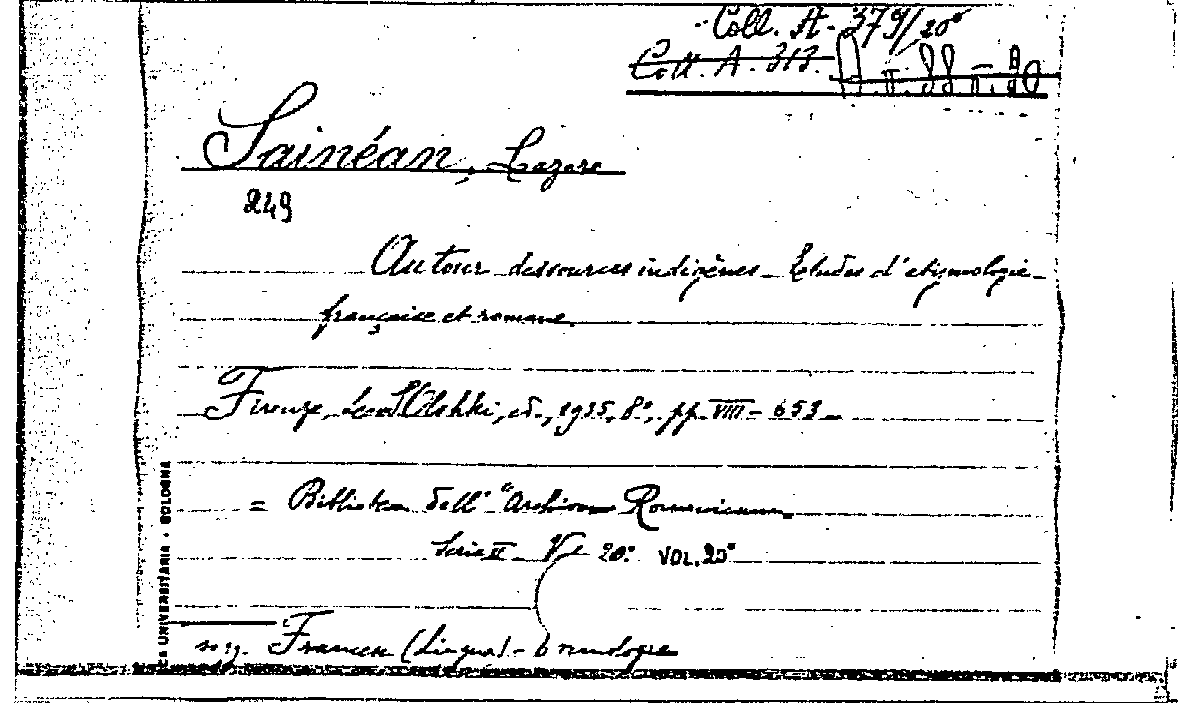 Coll. A. 379/20°
Coll. A. 313.
Sainéan, Lazare
249
Autour des sources indigènes - Etudes d'etymologie
française et romane.
Firenze, Leo S. Olshki, ed., 1935, 8°, pp. VIII - 653
= Biblioteca dell' "Archivum Romanicum
Serie II - Vol 20° VOL. 20°
sog. Francese (Lingua) - Etimologie
CA UNIVERSITARIA • BOLOGNA